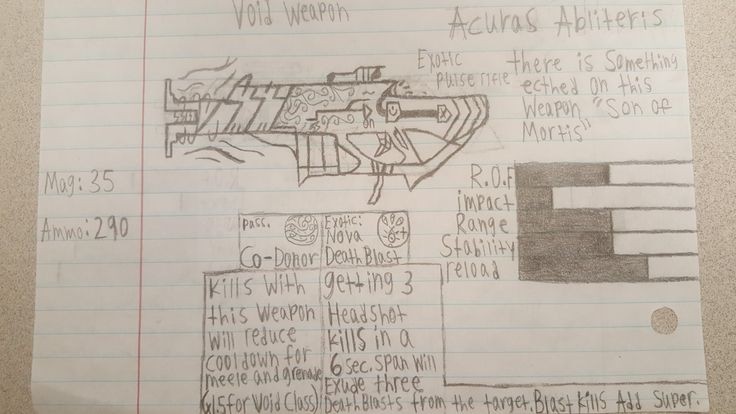 Void Weapon
Acuras Abliteris
Exotic
pulse rifle
there is something
ecthed on this
Weapon "Son of
Mortis"
on
Mag: 35
Ammo: 290
R.O.F
impact
Range
Stability
reload
Pass.
Co-Donor
Exotic:
Nova
Death Blast
Kills with
this weapon
will reduce
cooldown for
meele and grenade
(x1.5 for Void Class)
getting 3
Headshot
kills in a
6 sec. span will
Exude three
Death Blasts from the target. Blast Kills Add Super.